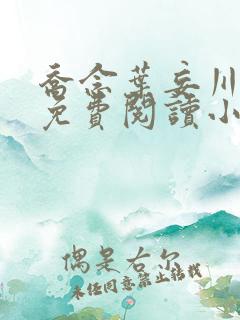 喬念葉妄川
免費閱讀小
偶是右尔
未经同意禁止转载